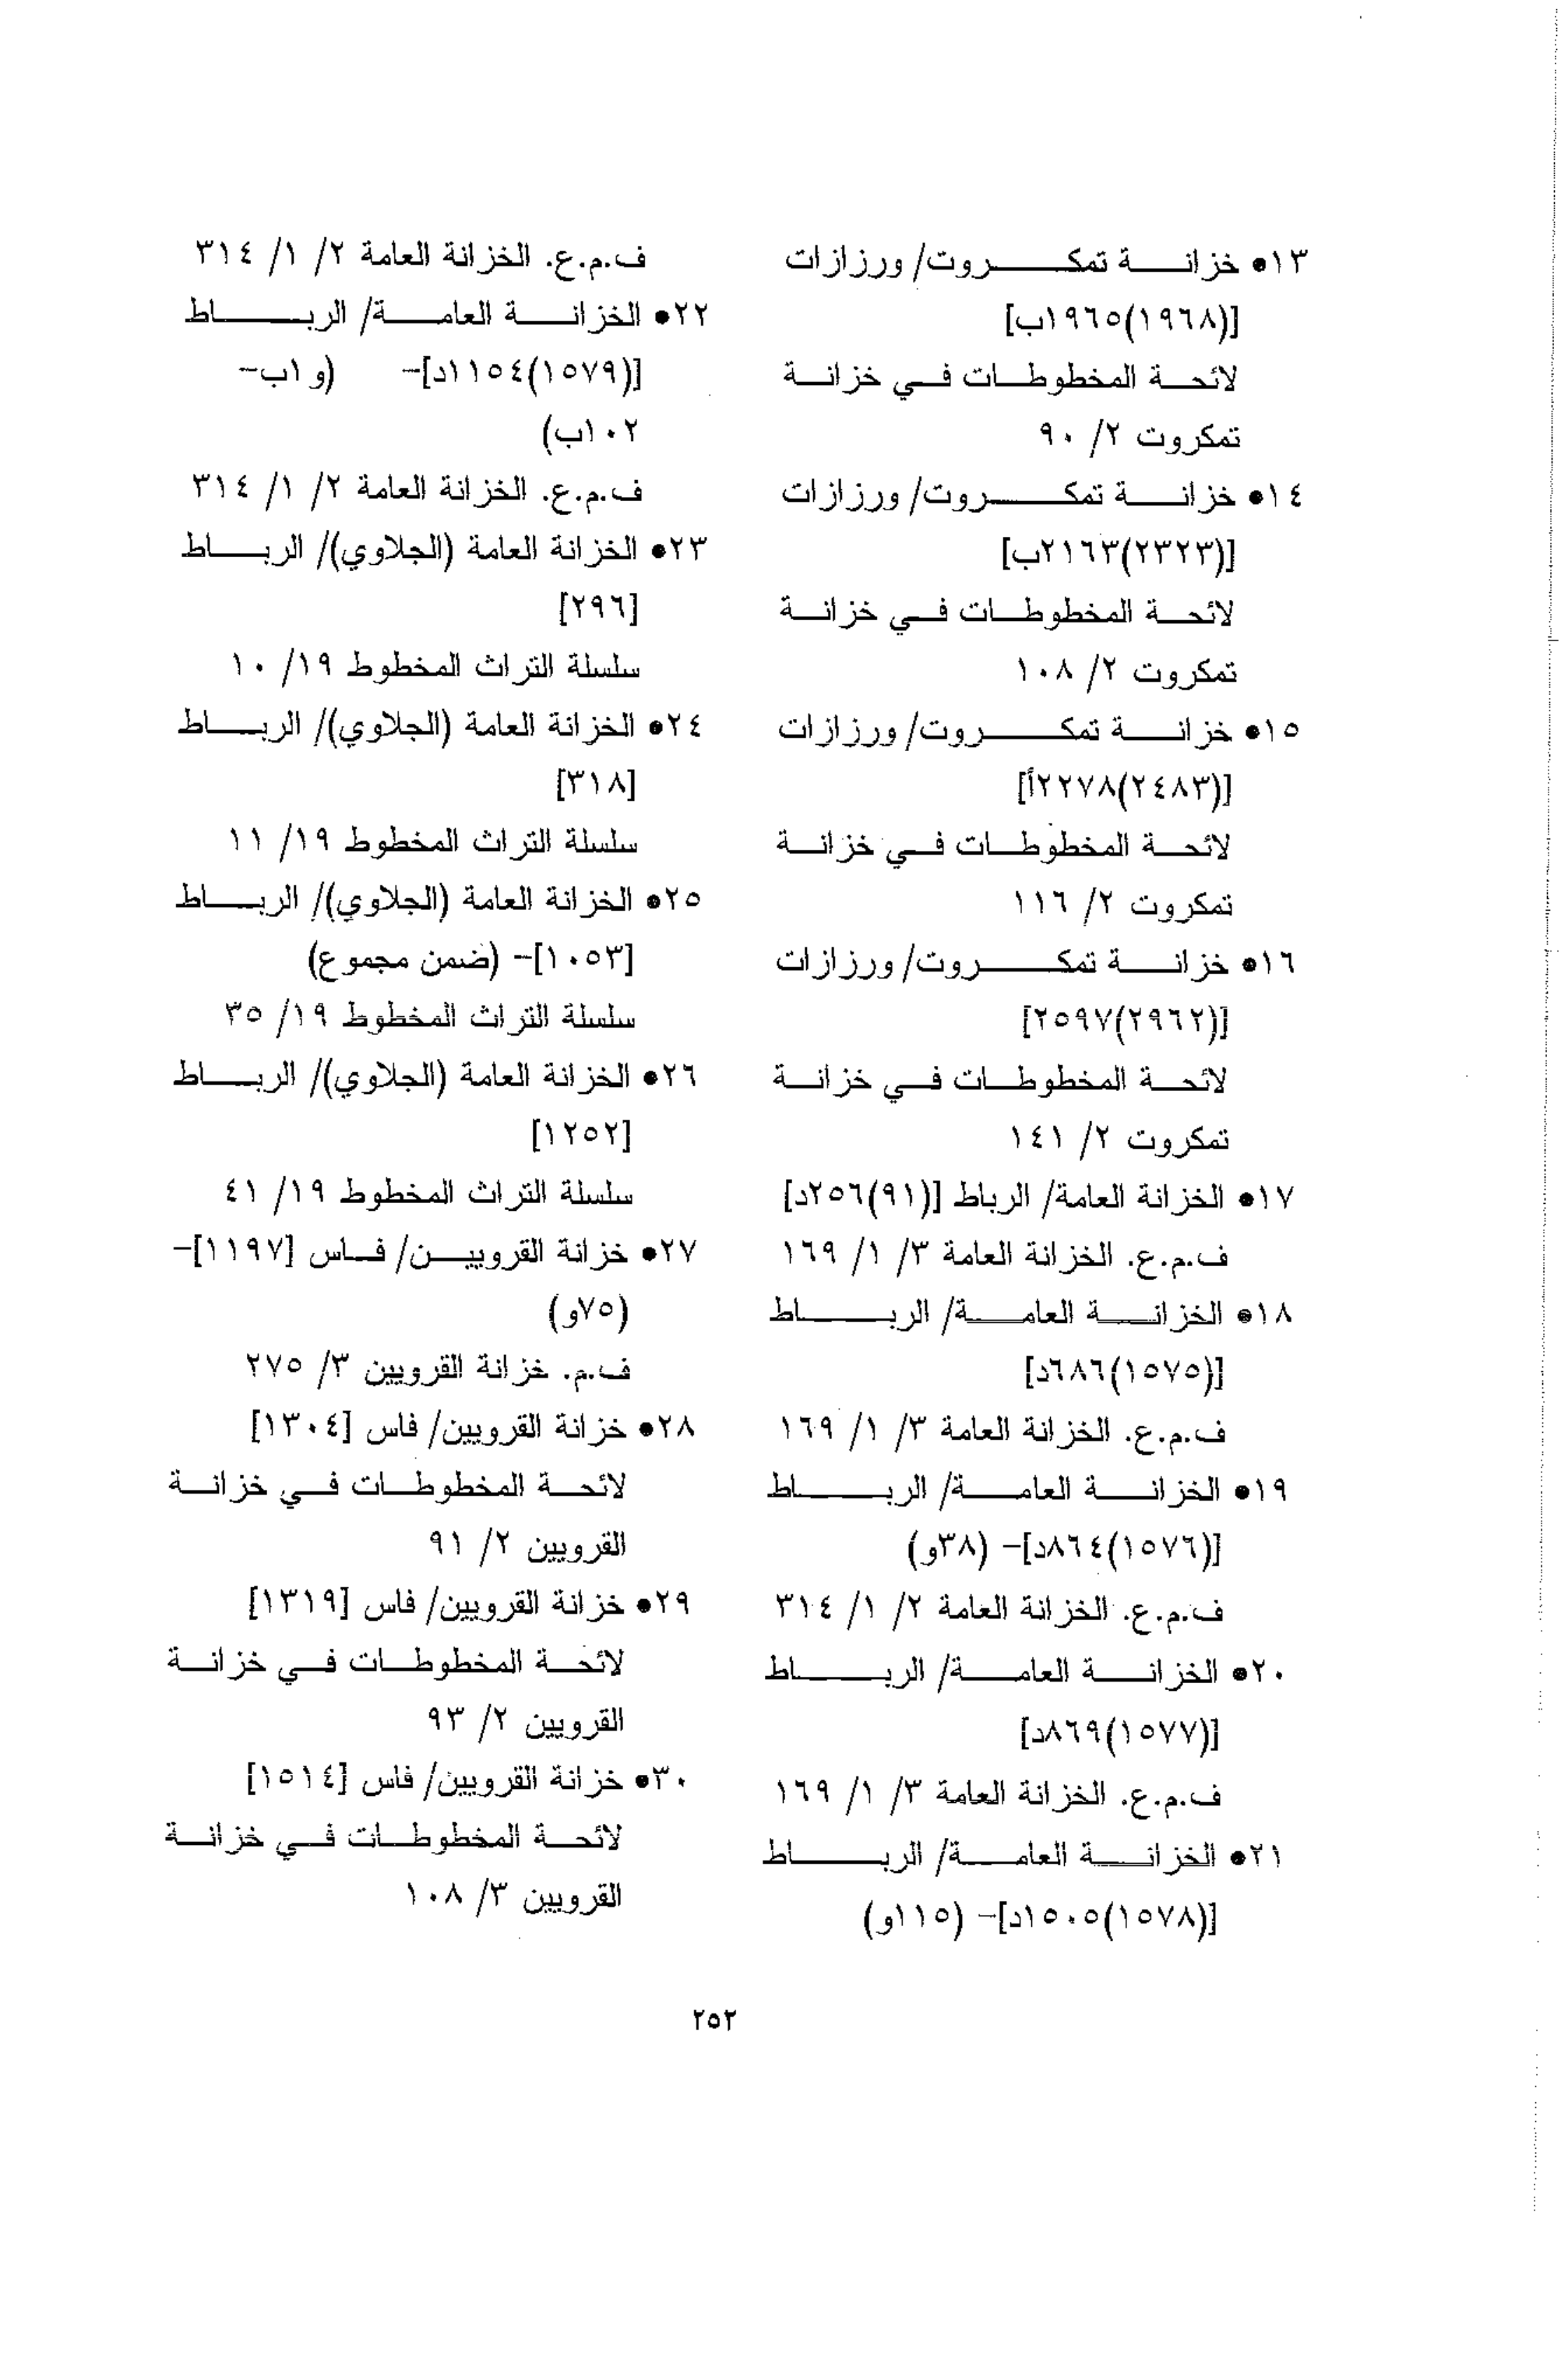 ١٣• خزانة تمكروت/ ورزازات
[(١٩٦٨)١٩٦٥ب]
لائحة المخطوطات في خزانة
تمكروت ٢/ ٩٠
١٤• خزانة تمكروت/ ورزازات
[(٢٣٢٣)٢١٦٣ب]
لائحة المخطوطات في خزانة
تمكروت ٢/ ١٠٨
١٥• خزانة تمكروت/ ورزازات
[(٢٤٨٣)٢٢٧٨أ]
لائحة المخطوطات في خزانة
تمكروت ٢/ ١١٦
١٦• خزانة تمكروت/ ورزازات
[(٢٩٦٢)٢٥٩٧]
لائحة المخطوطات في خزانة
تمكروت ٢/ ١٤١
١٧• الخزانة العامة/ الرباط [(٩١)٢٥٦د]
ف.م.ع. الخزانة العامة ٣/ ١/ ١٦٩
١٨• الخزانة العامة/ الرباط
[(١٥٧٥)٦٨٦د]
ف.م.ع. الخزانة العامة ٣/ ١/ ١٦٩
١٩• الخزانة العامة/ الرباط
[(١٥٧٦)٨٦٤د]– (٣٨و)
ف.م.ع. الخزانة العامة ٢/ ١/ ٣١٤
٢٠• الخزانة العامة/ الرباط
[(١٥٧٧)٨٦٩د]
ف.م.ع. الخزانة العامة ٣/ ١/ ١٦٩
٢١• الخزانة العامة/ الرباط
[(١٥٧٨)١٥٠٥د]– (١١٥و)
ف.م.ع. الخزانة العامة ٢/ ١/ ٣١٤
٢٢• الخزانة العامة/ الرباط
[(١٥٧٩)١١٥٤د]– (و١ب–
١٠٢ب)
ف.م.ع. الخزانة العامة ٢/ ١/ ٣١٤
٢٣• الخزانة العامة (الجلاوي)/ الرباط
[٢٩٦]
سلسلة التراث المخطوط ١٩/ ١٠
٢٤• الخزانة العامة (الجلاوي)/ الرباط
[٣١٨]
سلسلة التراث المخطوط ١٩/ ١١
٢٥• الخزانة العامة (الجلاوي)/ الرباط
[١٠٥٣]– (ضمن مجموع)
سلسلة التراث المخطوط ١٩/ ٣٥
٢٦• الخزانة العامة (الجلاوي)/ الرباط
[١٢٥٢]
سلسلة التراث المخطوط ١٩/ ٤١
٢٧• خزانة القرويين/ فاس [١١٩٧]–
(٧٥و)
ف.م. خزانة القرويين ٣/ ٢٧٥
٢٨• خزانة القرويين/ فاس [١٣٠٤]
لائحة المخطوطات في خزانة
القرويين ٢/ ٩١
٢٩• خزانة القرويين/ فاس [١٣١٩]
لائحة المخطوطات في خزانة
القرويين ٢/ ٩٣
٣٠• خزانة القرويين/ فاس [١٥١٤]
لائحة المخطوطات في خزانة
القرويين ٣/ ١٠٨
٢٥٢